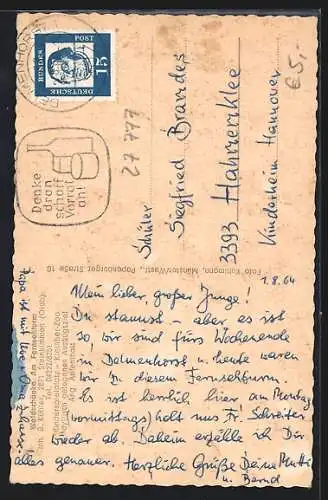 DEUTSCHE
BUNDES
POST
15
Denke
dran
schaff
Vorrat
an!
27777
€ 5,-
Schüler
Siegfried Brandes
3393 Hahnenklee
Kinderheim Hannover
Foto Kuhlmann, Münster/Westf., Papenburger Straße 10
Waldschänke Am Fernsehturm
Tel.
1.8.64
Mein lieber, großer Junge!
Du staunst – aber es ist
so, wir sind fürs Wochenende
in Delmenhorst u. heute waren
wir in diesem Fernsehturm.
Es ist herrlich hier am Montag
(vormittags) holt uns Fr. Schreiter
wieder ab. Daheim erzähle ich Dir
alles genauer. Herzliche Grüße Deine Mutti
u. Bernd
Papa ist mit Uwe + Oma zuhaus.